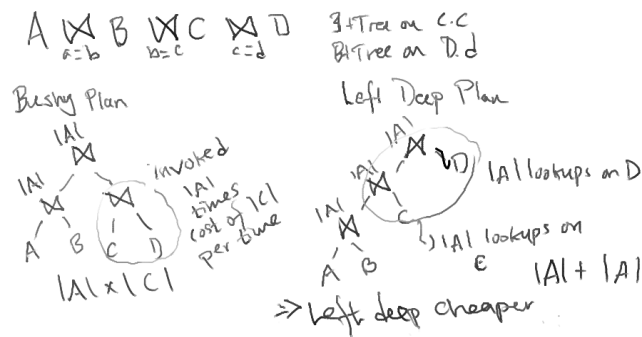 A ⋈ B ⋈ C ⋈ D
a=b b=c c=d
B+Tree on C.c
B+Tree on D.d
Bushy Plan
|A|
⋈
|A|
⋈ ⋈
A B C D
invoked
|A|
times
cost of |C|
per time
|A| x |C|
Left Deep Plan
|A|
⋈
|A|
⋈ D
|A|
⋈ C
A B
|A| lookups on D
|A| lookups on
C
|A| + |A|
=> Left deep cheaper